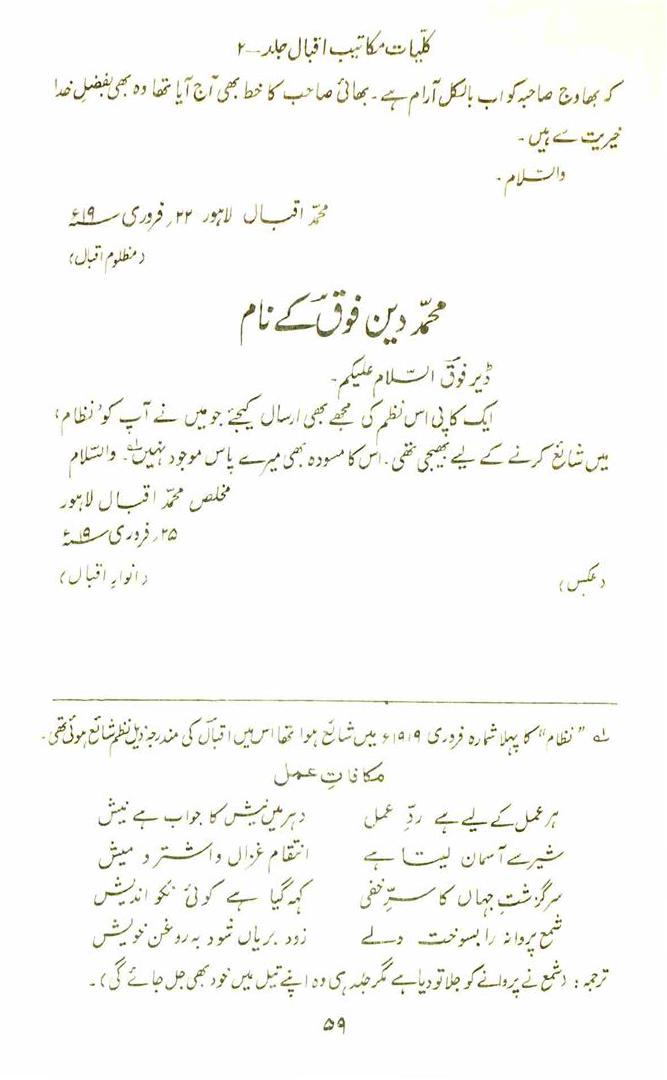 کلّیات مکاتیب اقبال جلد ۔ ۲
کہ بھاوج صاحبہ کو اب بالکل آرام ہے۔ بھائی صاحب کا خط بھی آج آیا تھا وہ بھی بفضلِ خدا
خیریت سے ہیں۔
والسّلام۔
محمّد اقبال لاہور ۲۲؍ فروری ۱۹ء
(مظلوم اقبال)
محمّد دین فوقؔ کے نام
ڈیر فوقؔ السّلام علیکم۔
ایک کاپی اس نظم کی مجھے بھی ارسال کیجئے جو میں نے آپ کو ’نظام‘
میں شائع کرنے کے لیے بھیجی تھی۔ اس کا مسودہ بھی میرے پاس موجود نہیں لہ۔ والسّلام
مخلص محمّد اقبال لاہور
۲۵؍ فروری ۱۹ء
(عکس) (انوارِ اقبال)
لہ ”نظام“ کا پہلا شمارہ فروری ۱۹۱۹ء میں شائع ہوا تھا اس میں اقبالؔ کی مندرجہ ذیل نظم شائع ہوئی تھی۔
مکافاتِ عمل
ہر عمل کے لیے ہے ردِّ عمل دہر میں نیش کا جواب ہے نیش
شیر سے آسمان لیتا ہے انتقام غزال و اشتر و میش
سرگزشتِ جہاں کا سرِّ خفی کہہ گیا ہے کوئی نکو اندیش
شمع پروانہ را بسوخت ولے زود بریاں شود بہ روغن خویش
ترجمہ: (شمع نے پروانے کو جلا تو دیا ہے مگر جلد ہی وہ اپنے تیل میں خود بھی جل جائے گی)۔
۵۹